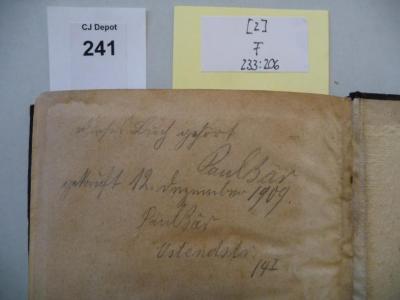 CJ Depot
241
[2]
F
233:206
dieses Buch gehört
Paul Bär
gekauft 12. Dezember 1909.
Paul Bär
Ostendstr.
14I